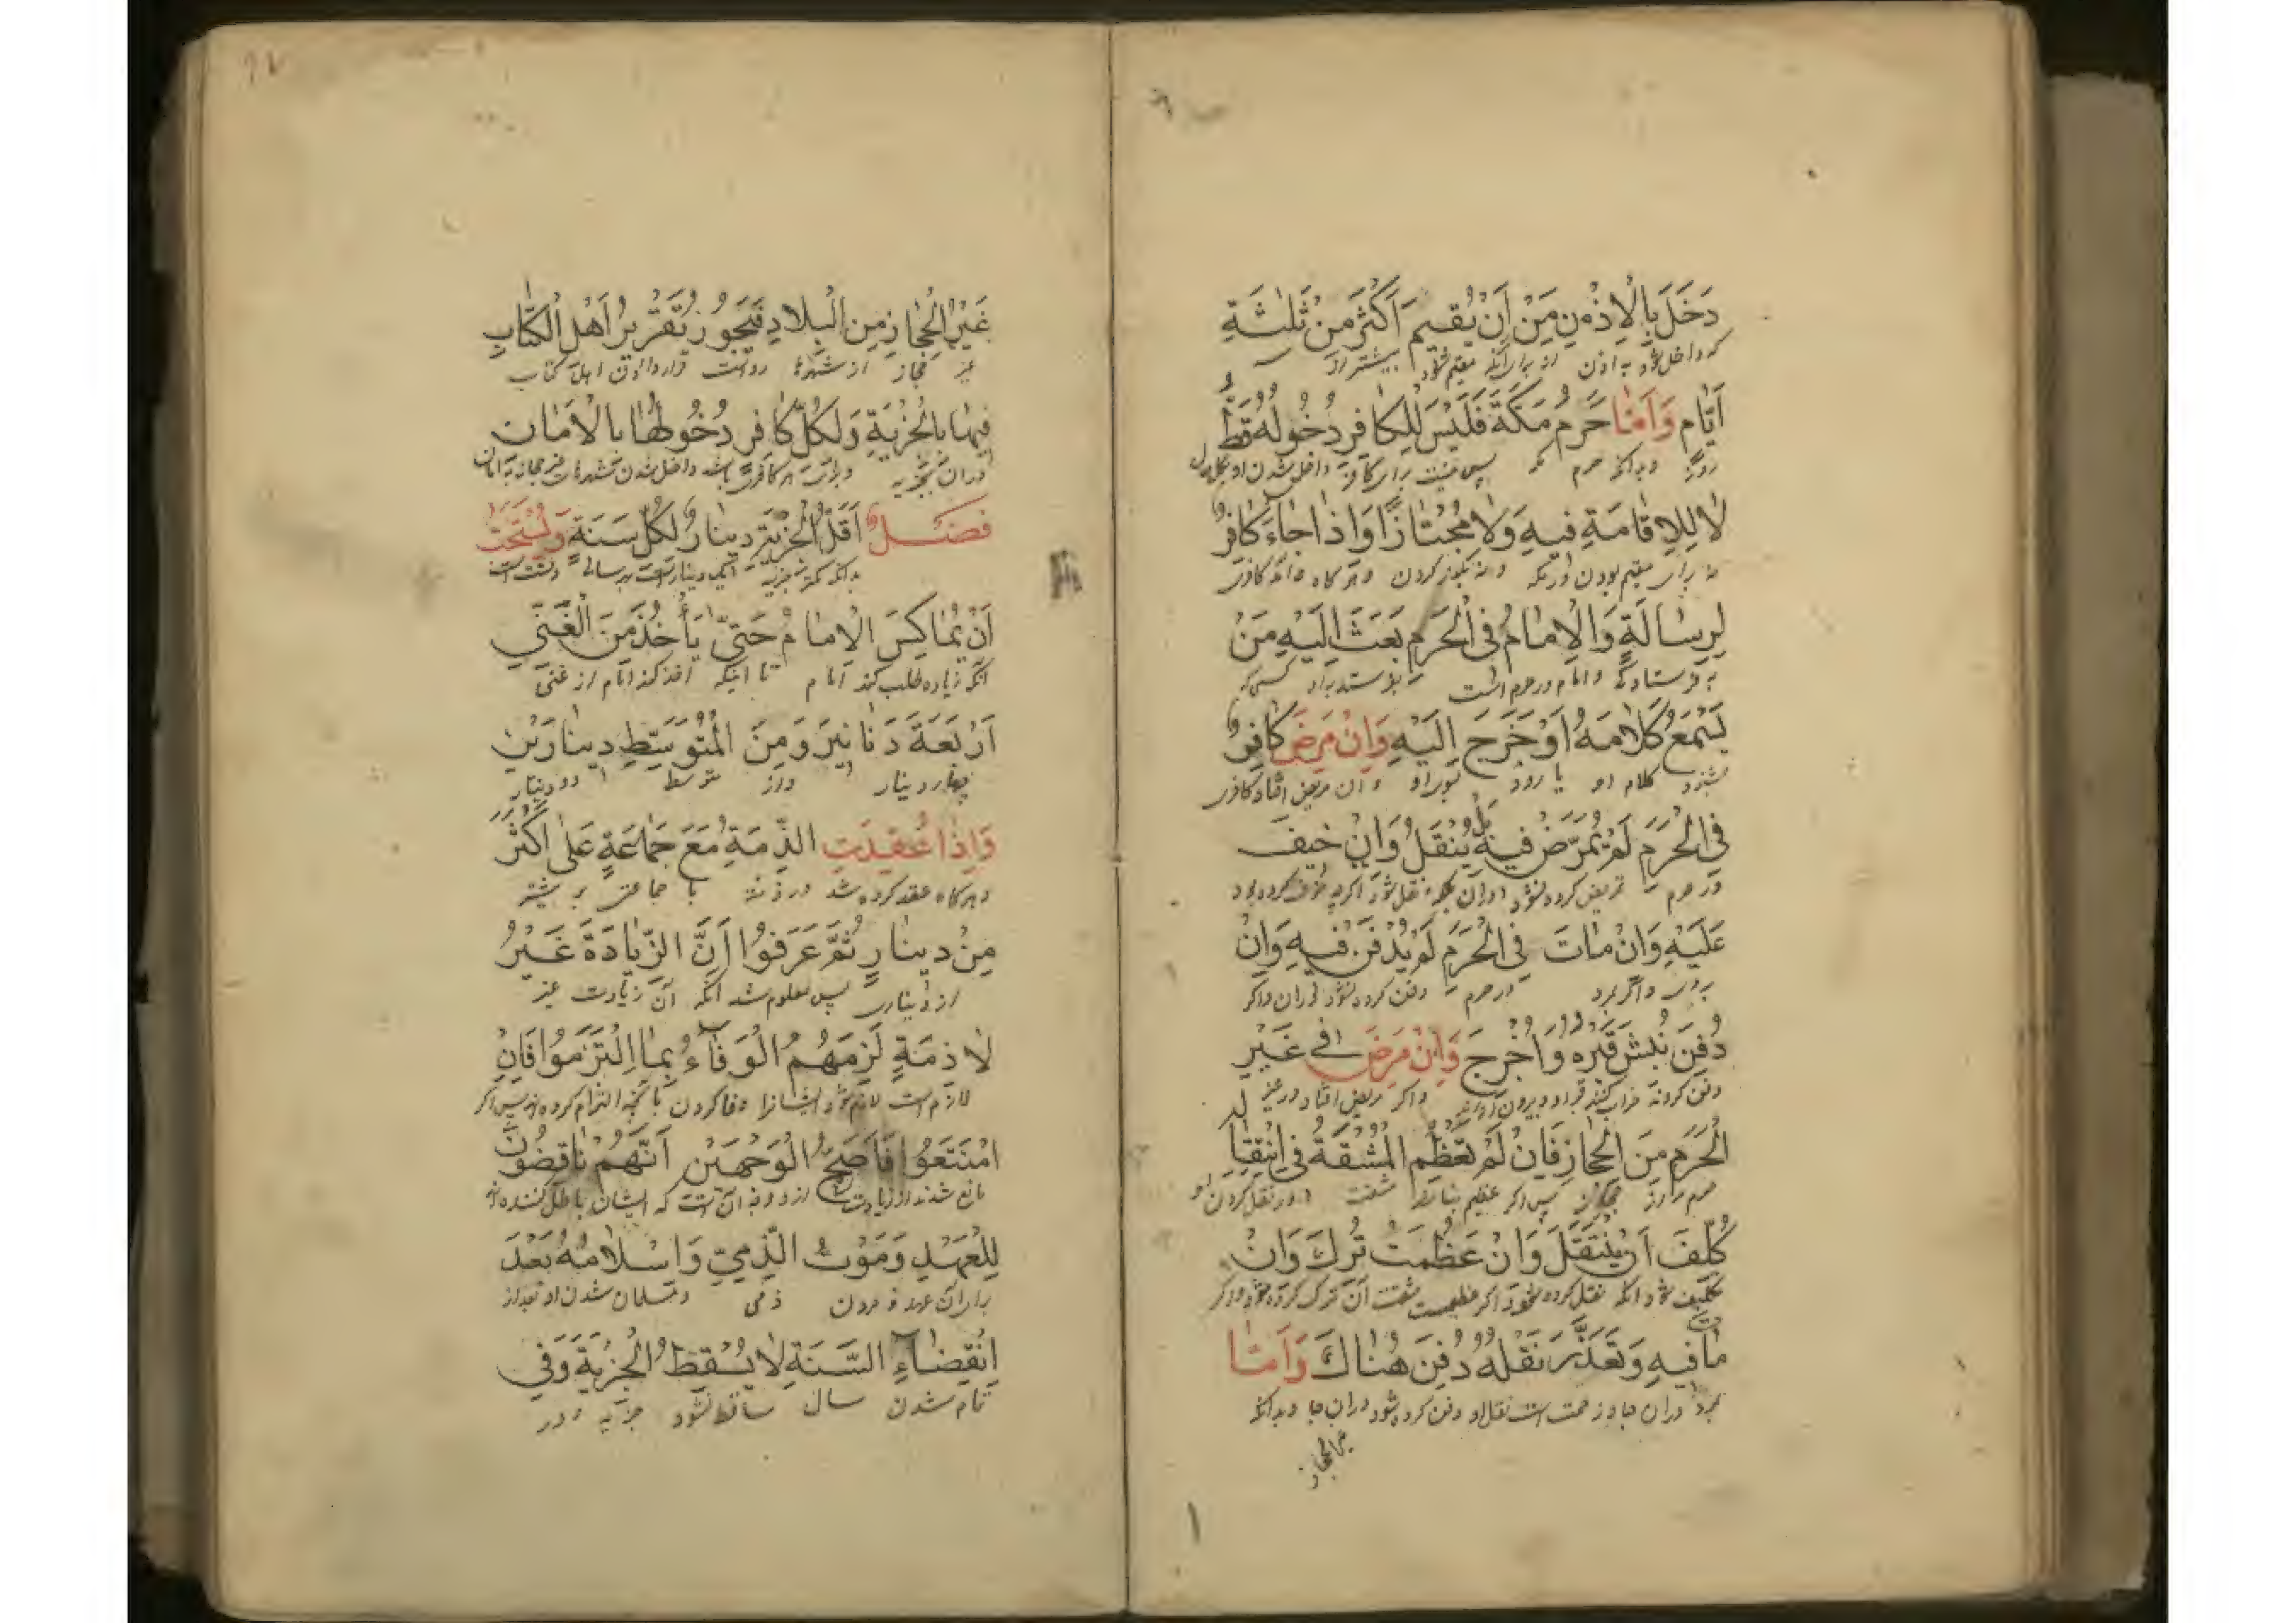 دَخَلَ بِالْاِذْنِ مِنْ اَنْ يُقِيمَ اَكْثَرَ مِنْ ثَلٰثَةِ
كه داخل شود به اذن از براى آنكه مقيم شود بيشتر از
اَيَّامٍ وَاَمَّا حَرَمُ مَكَّةَ فَلَيْسَ لِلْكَافِرِ دُخُولُهُ قَطُّ
روز وبدانكه حرم مكه پس نيست براى كافر داخل شدن او
لَا لِلْاِقَامَةِ فِيهِ وَلَا مُجْتَازًا وَاِذَا جَاءَ كَافِرٌ
نه براى مقيم بودن در مكه ونه كردن وهركاه كافرى
لِرِسَالَةٍ وَالْاِمَامُ فِى الْحَرَمِ بَعَثَ اِلَيْهِ مَنْ
به فرستادكى وامام در حرم است بفرستد باو كسى كه
يَسْمَعُ كَلَامَهُ اَوْ خَرَجَ اِلَيْهِ وَاِنْ مَرِضَ كَافِرٌ
بشنود كلام او يا رود بسوى او وان مريض افتاد كافرى
فِى الْحَرَمِ لَمْ يُمَرَّضْ فِيهِ بَلْ يُنْقَلُ وَاِنْ خِيفَ
در حرم تمريض كرده نشود دران بلكه نقل شود اكرچه خوف كرده بود
عَلَيْهِ وَاِنْ مَاتَ فِى الْحَرَمِ لَمْ يُدْفَنْ فِيهِ وَاِنْ
بروى واكر بمرد در حرم دفن كرده نشود دران واكر
دُفِنَ نُبِشَ قَبْرُهُ وَاُخْرِجَ وَاِنْ مَرِضَ فِى غَيْرِ
دفن كردند خراب كنند قبر او وبيرون آورند واكر مريض افتاد در غير
الْحَرَمِ مِنَ الْحِجَازِ فَاِنْ لَمْ تَعْظُمِ الْمَشَقَّةُ فِى انْتِقَالِهِ
حرم از حجاز پس اكر عظيم نباشد مشقت در نقل كردن او
كُلِّفَ اَنْ يَنْتَقِلَ وَاِنْ عَظُمَتْ تُرِكَ وَاِنْ
تكليف شود آنكه نقل كرده شود اكر عظيمست مشقت آن ترك كرده شود واكر
مَاتَ فِيهِ وَتَعَذَّرَ نَقْلُهُ دُفِنَ هُنَاكَ وَاَمَّا
بمرد دران جا و زحمت است نقل او دفن كرده شود دران جا وبدانكه
غير الحجاز
غَيْرُ الْحِجَازِ مِنَ الْبِلَادِ فَيَجُوزُ تَقْرِيرُ اَهْلِ الْكِتَابِ
غير حجاز از شهرها رواست قرار دادن اهل كتاب
فِيهَا بِالْجِزْيَةِ وَلِكُلِّ كَافِرٍ دُخُولُهَا بِالْاَمَانِ
دران بجزيه وبراى هر كافرى باشد داخل شدن شهرهاى غير حجاز به امان
فَصْلٌ اَقَلُّ الْجِزْيَةِ دِينَارٌ لِكُلِّ سَنَةٍ وَيُسْتَحَبُّ
بدانكه كمتر جزيه يكى دينار است هر سالى وسنت است
اَنْ يُمَاكِسَ الْاِمَامُ حَتّٰى يَأْخُذَ مِنَ الْغَنِيِّ
آنكه زياده طلب كند امام تا اينكه اخذ كند امام از غنى
اَرْبَعَةَ دَنَانِيرَ وَمِنَ الْمُتَوَسِّطِ دِينَارَيْنِ
چهار دينار واز متوسط دو دينار
وَاِذَا عُقِدَتِ الذِّمَّةُ مَعَ جَمَاعَةٍ عَلٰى اَكْثَرَ
وهركاه عقد كرده شد در ذمه با جماعتى بر بيشتر
مِنْ دِينَارٍ ثُمَّ عَرَفُوا اَنَّ الزِّيَادَةَ غَيْرُ
از دينارى پس معلوم شد آنكه آن زيادت غير
لَازِمَةٍ لَزِمَهُمُ الْوَفَاءُ بِمَا الْتَزَمُوا فَاِنِ
لازم است لازم شود ايشانرا وفا كردن بآنچه التزام كرده اند پس اكر
امْتَنَعُوا فَاَصَحُّ الْوَجْهَيْنِ اَنَّهُمْ نَاقِضُونَ
مانع شدند از زيادت از دو وجه آنست كه ايشان باطل كننده اند
لِلْعَهْدِ وَمَوْتُ الذِّمِّيِّ وَاِسْلَامُهُ بَعْدَ
عهد و مردن ذمى ومسلمان شدن او بعد از
انْقِضَاءِ السَّنَةِ لَا يُسْقِطُ الْجِزْيَةَ وَفِى
تمام شدن سال ساقط نشود جزيه ودر